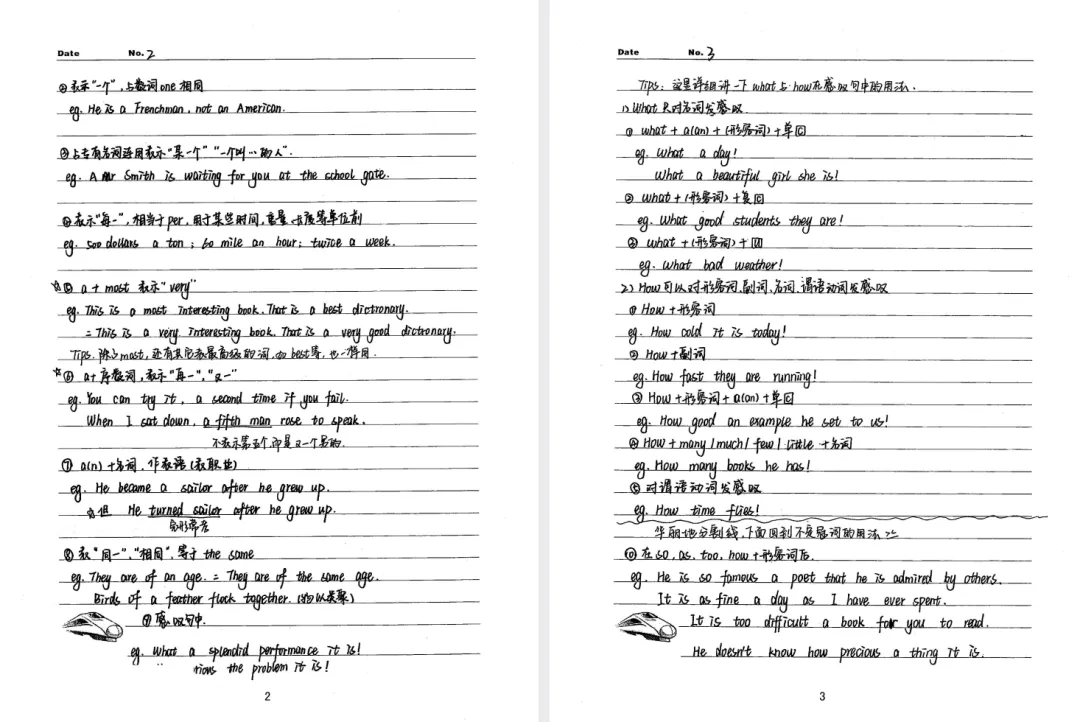 Date No. 2
②表示"一个",与数词one相同
eg. He is a Frenchman, not an American.
③与专有名词连用表示"某一个" "一个叫…的人".
eg. A Mr Smith is waiting for you at the school gate.
④表示"每一",相当于per,用于某些时间,重量、长度等单位前
eg. 500 dollars a ton; 60 mile an hour; twice a week.
☆⑤ a + most 表示"very"
eg. This is a most interesting book. That is a best dictionary.
= This is a very interesting book. That is a very good dictionary.
Tips. 除了most,还有其它表最高级的词,如best等,也一样用.
☆⑥ a+序数词,表示"再一","又一"
eg. You can try it, a second time if you fail.
When I sat down, a fifth man rose to speak.
不表示第五个,而是又一个男的.
⑦ a(n)+名词,作表语(表职业)
eg. He became a sailor after he grew up.
☆但 He turned sailor after he grew up.
⑧表"同一","相同",等于the same
eg. They are of an age. = They are of the same age.
Birds of a feather flock together. (物以类聚)
⑨感叹句中.
eg. What a splendid performance it is!
rious the problem it is!
2
Date No. 3
Tips: 这里详细讲一下what与how在感叹句中的用法.
1) What只对名词发感叹
① what + a(an) + (形容词) + 单
eg. What a day!
What a beautiful girl she is!
② what + (形容词) + 复
eg. What good students they are!
③ what + (形容词) +
eg. What bad weather!
2) How可以对形容词,副词,名词,谓语动词发感叹
① How + 形容词
eg. How cold it is today!
② How + 副词
eg. How fast they are running!
③ How + 形容词 + a(an) + 单
eg. How good an example he set to us!
④ How + many / much / few / little + 名词
eg. How many books he has!
⑤ 对谓语动词发感叹
eg. How time flies!
华丽地分割线,下面回到不定冠词的用法
⑩在so, as, too, how+形容词后.
eg. He is so famous a poet that he is admired by others.
It is as fine a day as I have ever spent.
It is too difficult a book for you to read.
He doesn't know how precious a thing it is.
3